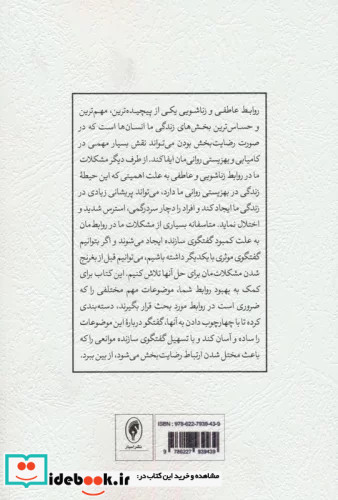 روابط عاطفی و زناشویی یکی از پیچیده‌ترین، مهم‌ترین
و حساس‌ترین بخش‌های زندگی ما انسان‌ها است که در
صورت رضایت‌بخش بودن می‌تواند نقش بسیار مهمی در
کامیابی و بهزیستی روانی‌مان ایفا کند. از طرف دیگر مشکلات
ما در روابط زناشویی و عاطفی به علت اهمیتی که این حیطهٔ
زندگی در بهزیستی روانی ما دارد، می‌تواند پریشانی زیادی در
زندگی ما ایجاد کند و افراد را دچار سردرگمی، استرس شدید و
اختلال نماید. متاسفانه بسیاری از مشکلات ما در روابط‌مان
به علت کمبود گفتگوی سازنده ایجاد می‌شوند و اگر بتوانیم
گفتگوی موثری با یکدیگر داشته باشیم، می‌توانیم قبل از بغرنج
شدن مشکلات‌مان برای حل آنها تلاش کنیم. این کتاب برای
کمک به بهبود روابط شما، موضوعات مهم مختلفی را که
ضروری است در روابط مورد بحث قرار بگیرند، دسته‌بندی
کرده تا با چهارچوب دادن به آنها، گفتگو دربارهٔ این موضوعات
را ساده و آسان کند و با تسهیل گفتگوی سازنده موانعی را که
باعث مختل شدن ارتباط رضایت‌بخش می‌شود، از بین ببرد.
ISBN: 978-622-7938-43-9
9 786227 938439
نشر اسبار
مشاهده و خرید این کتاب در:
idebook.ir